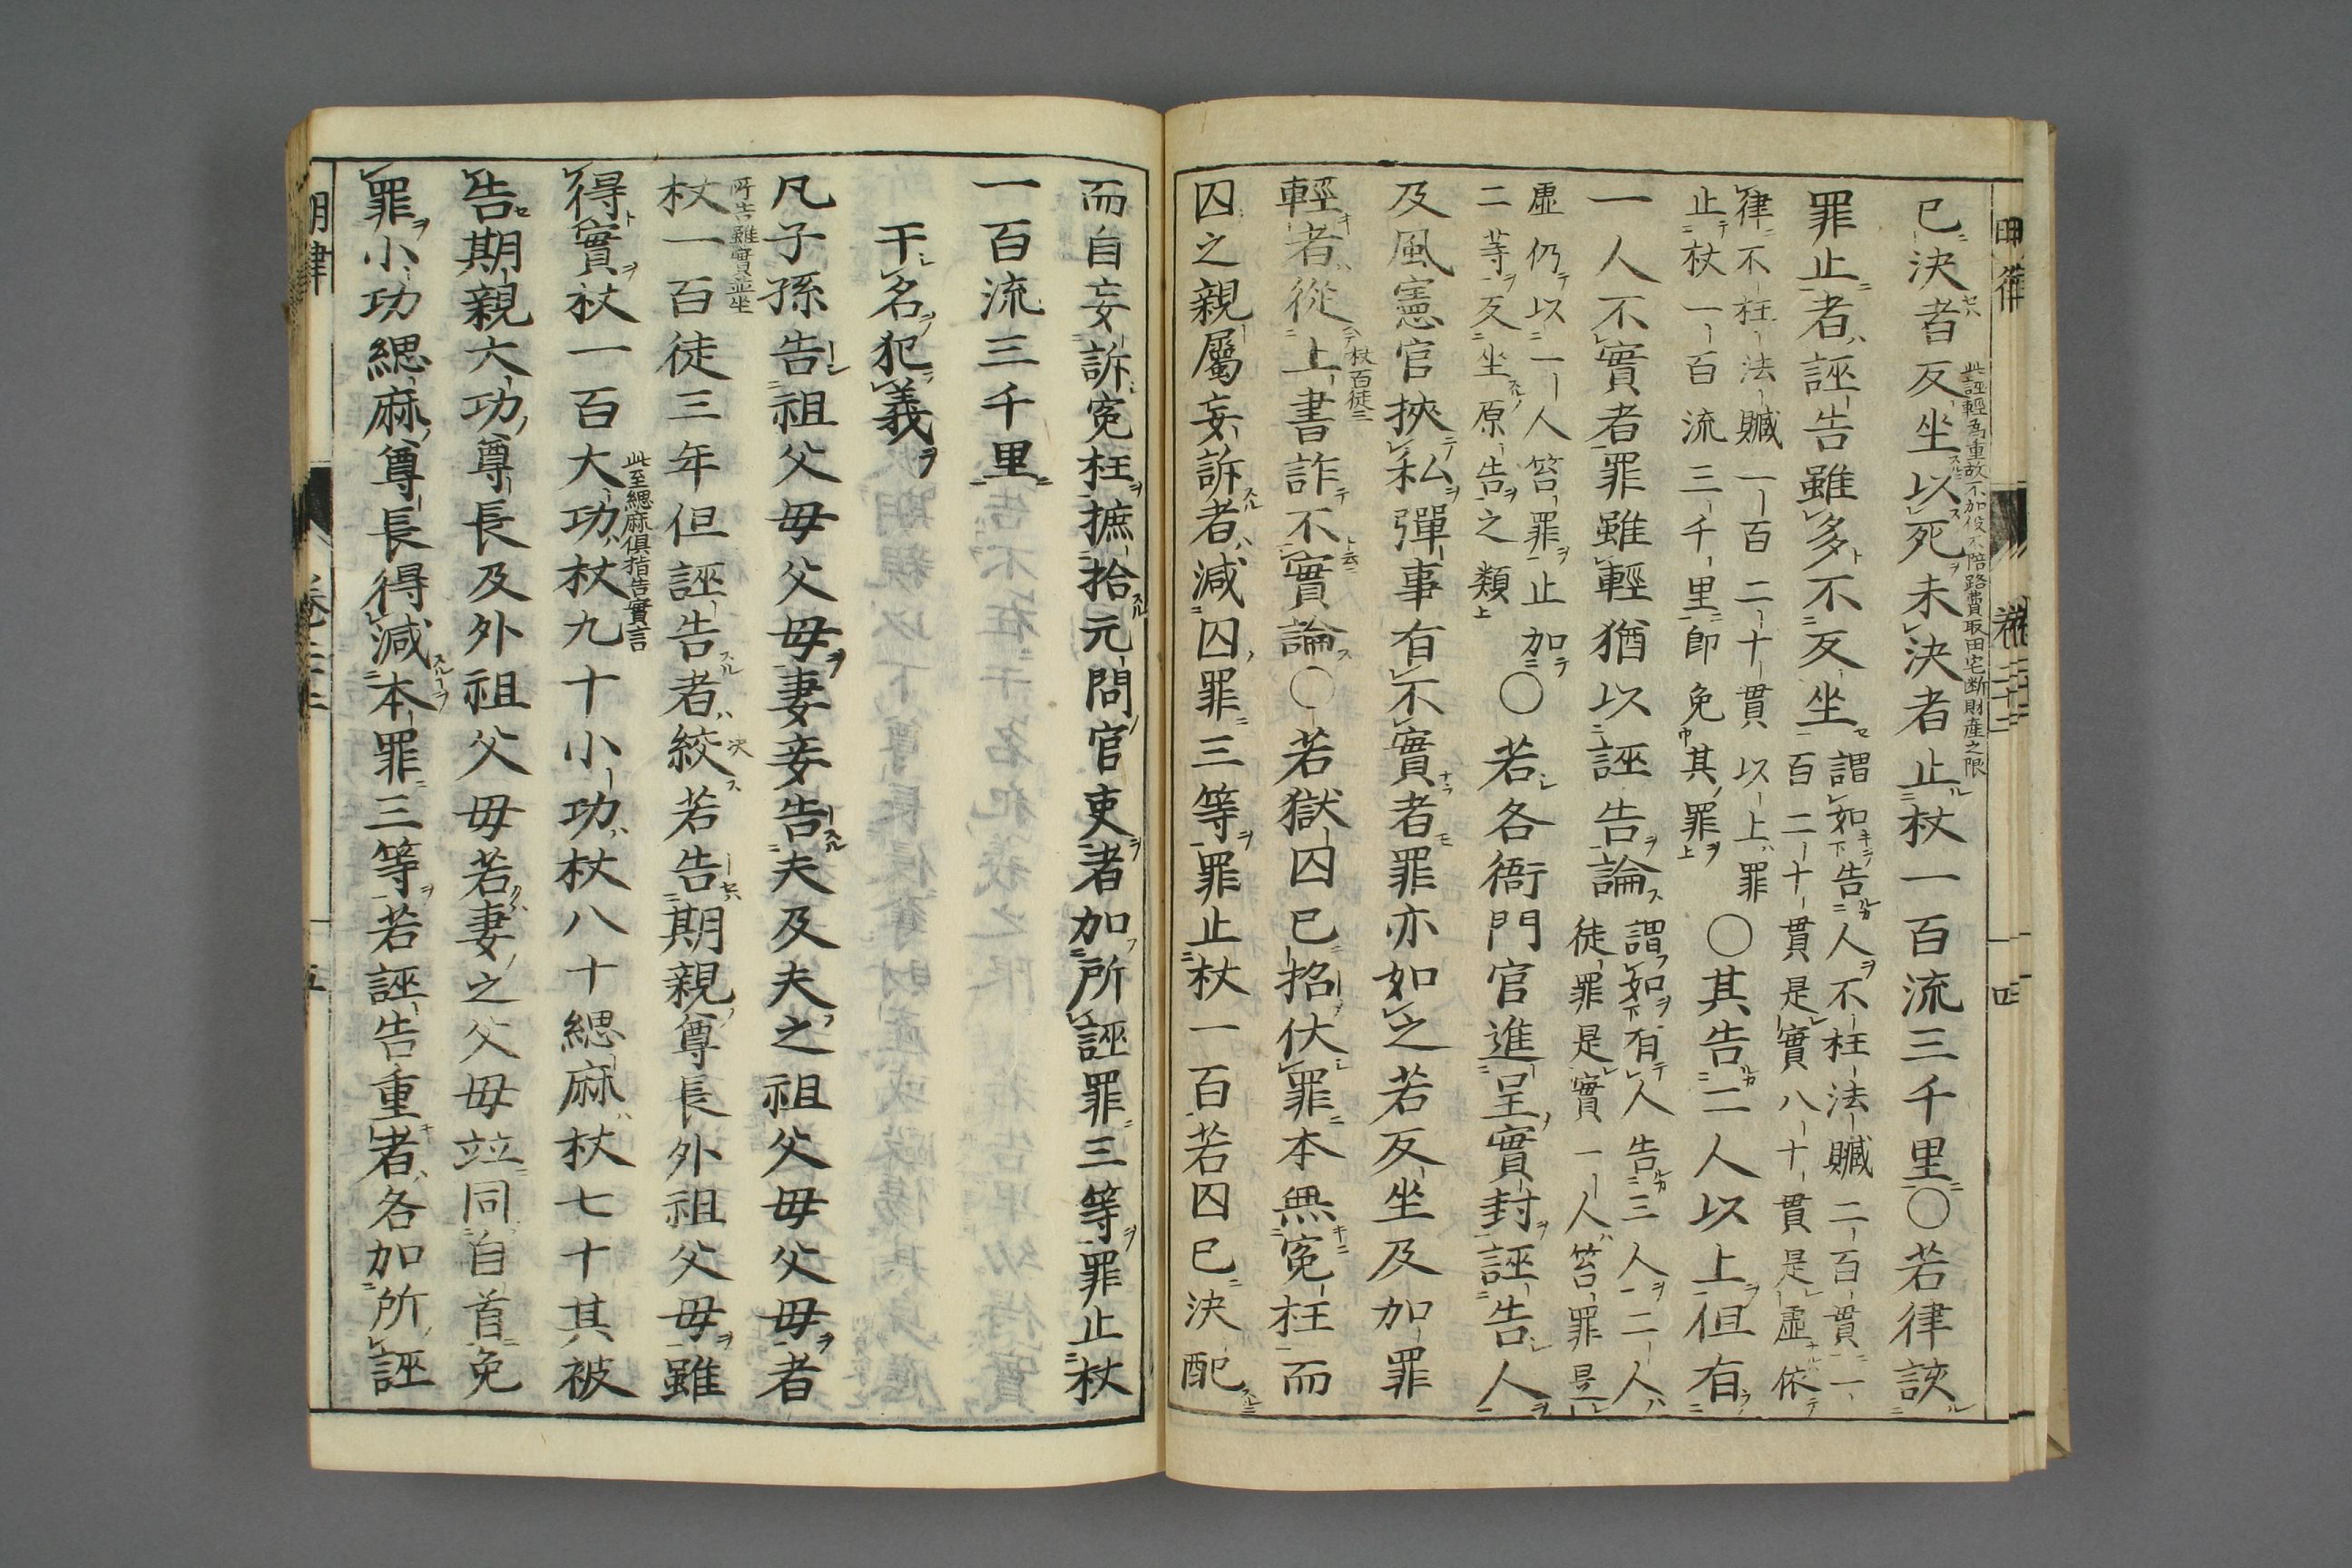 明律 卷二十二 四
已決者反坐以死未決者止杖一百流三千里○若律該
此誣輕爲重故不加役不陪路費取田宅断財產之限
罪止者誣告雖多不反坐
謂如告人不枉法贓二百貫一
百二十貫是實八十貫是虛依
律不枉法贓一百二十貫以上罪
止杖一百流三千里即免其罪
○其告二人以上但有
一人不實者罪雖輕猶以誣告論
謂如有人告三人二人
徒罪是實一人笞罪是
虛仍以一人笞罪止加
二等反坐原告之類
○若各衙門官進呈實封誣告人
及風憲官挾私彈事有不實者罪亦如之若反坐及加罪
輕者從上書詐不實論○若獄囚已招伏罪本無冤枉而
杖百徒三
囚之親屬妄訴者減囚罪三等罪止杖一百若囚已決配
而自妄訴冤枉摭拾元問官吏者加所誣罪三等罪止杖
一百流三千里
干名犯義
凡子孫告祖父母父母妻妾告夫及夫之祖父母父母者
杖一百徒三年但誣告者絞若告期親尊長外祖父母雖
所告雖實並坐
決
得實杖一百大功杖九十小功杖八十緦麻杖七十其被
此至緦麻俱指告實言
告期親大功尊長及外祖父母若妻之父母竝同自首免
罪小功緦麻尊長得減本罪三等若誣告重者各加所誣
明律 卷二十二 五